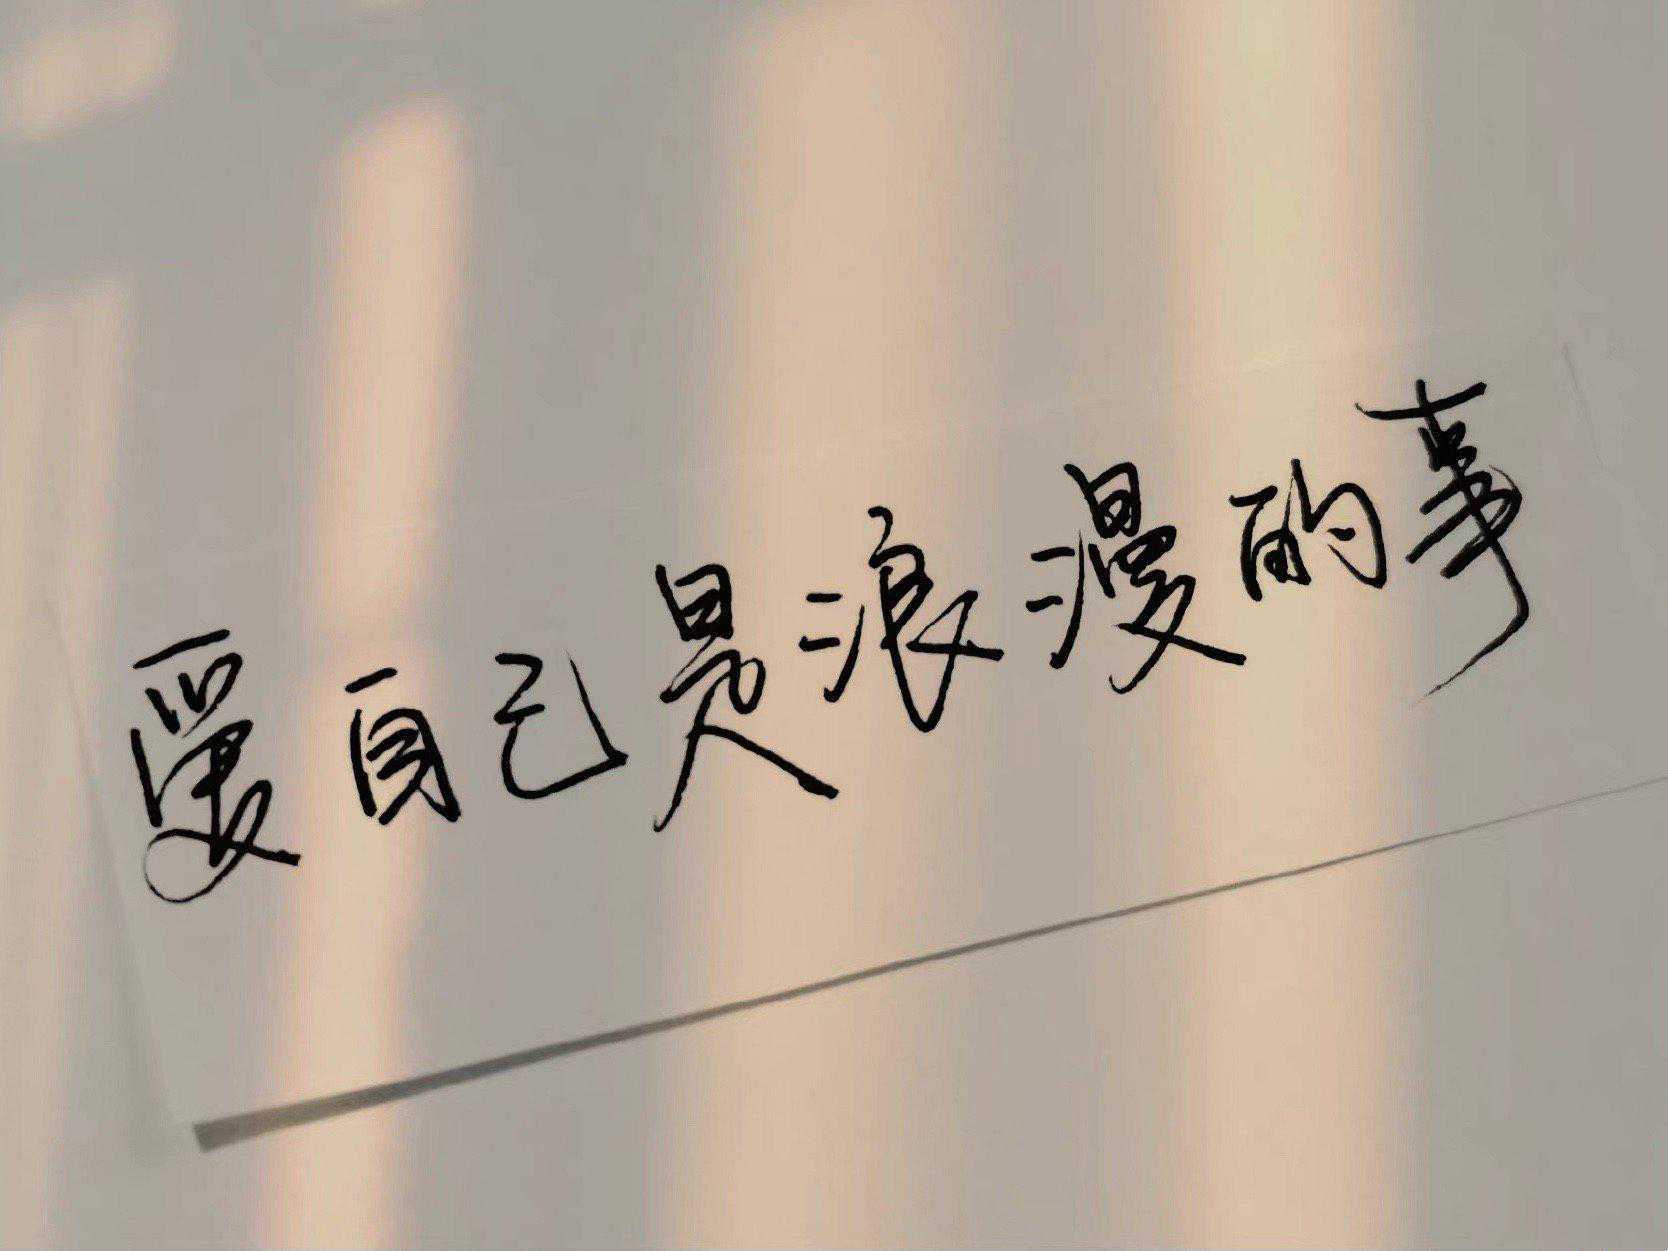 爱自己是浪漫的事